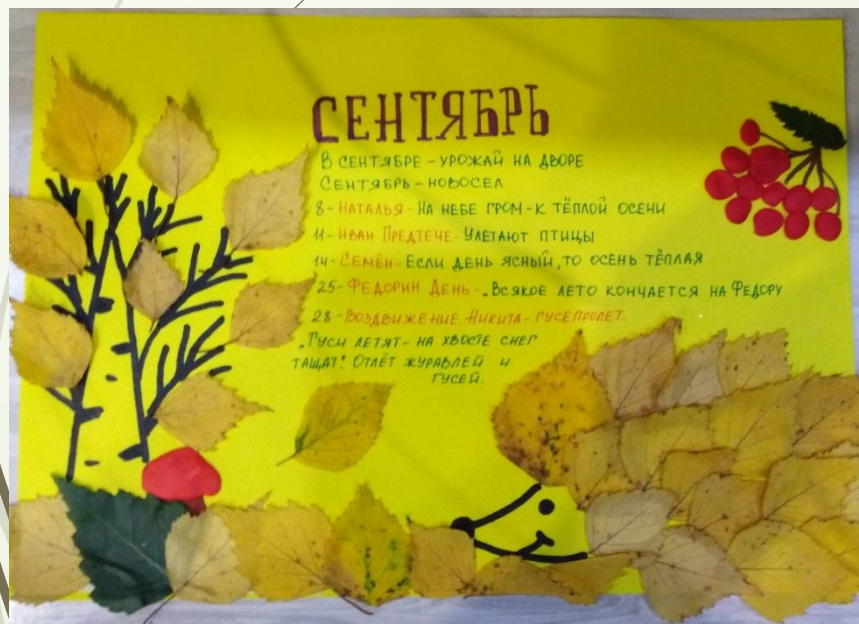 СЕНТЯБРЬ
В СЕНТЯБРЕ - УРОЖАЙ НА ДВОРЕ
СЕНТЯБРЬ - НОВОСЕЛ
8 - НАТАЛЬЯ - НА НЕБЕ ГРОМ - К ТЁПЛОЙ ОСЕНИ
11 - ИВАН ПРЕДТЕЧЕ - УЛЕТАЮТ ПТИЦЫ
14 - СЕМЁН - ЕСЛИ ДЕНЬ ЯСНЫЙ, ТО ОСЕНЬ ТЁПЛАЯ
25 - ФЕДОРИН ДЕНЬ - „ВСЯКОЕ ЛЕТО КОНЧАЕТСЯ НА ФЕДОРУ
28 - ВОЗДВИЖЕНИЕ. НИКИТА - ГУСЕПРОЛЕТ.
„ГУСИ ЛЕТЯТ - НА ХВОСТЕ СНЕГ
ТАЩАТ! ОТЛЁТ ЖУРАВЛЕЙ И
ГУСЕЙ.